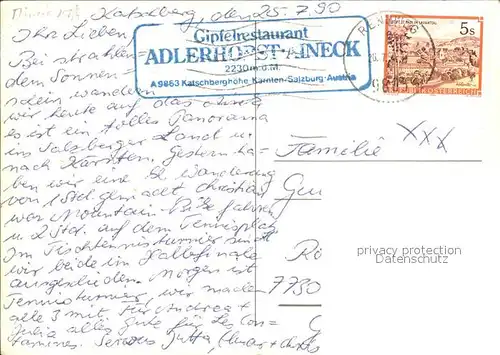 Katschberg, den 25.7.90
Ihr Lieben!
Bei strahlen-
dem Sonnen-
schein wandern
wir heute auf das Aineck
es ist ein tolles Panorama
ins Salzburger Land u.
nach Kärnten. Gestern ha-
ben wir eine kl. Wanderung
von 1 Std. gemacht Christian
war Mountain-Bike fahren
u. 2 Std. auf dem Tennisplatz
Im Tischtennisturnier sind
wir beide im Halbfinale
ausgeschieden. Morgen ist
Tennisturnier, wir machen
alle 3 mit. Für Andrea +
Julia alles Gute für
Servus Jutta
Gipfelrestaurant
ADLERHORST-AINECK
2230 m ü.M.
A 9863 Katschberghöhe Kärnten-Salzburg-Austria
5s
REPUBLIK ÖSTERREICH
XXX
Familie
7730
privacy protection
Datenschutz